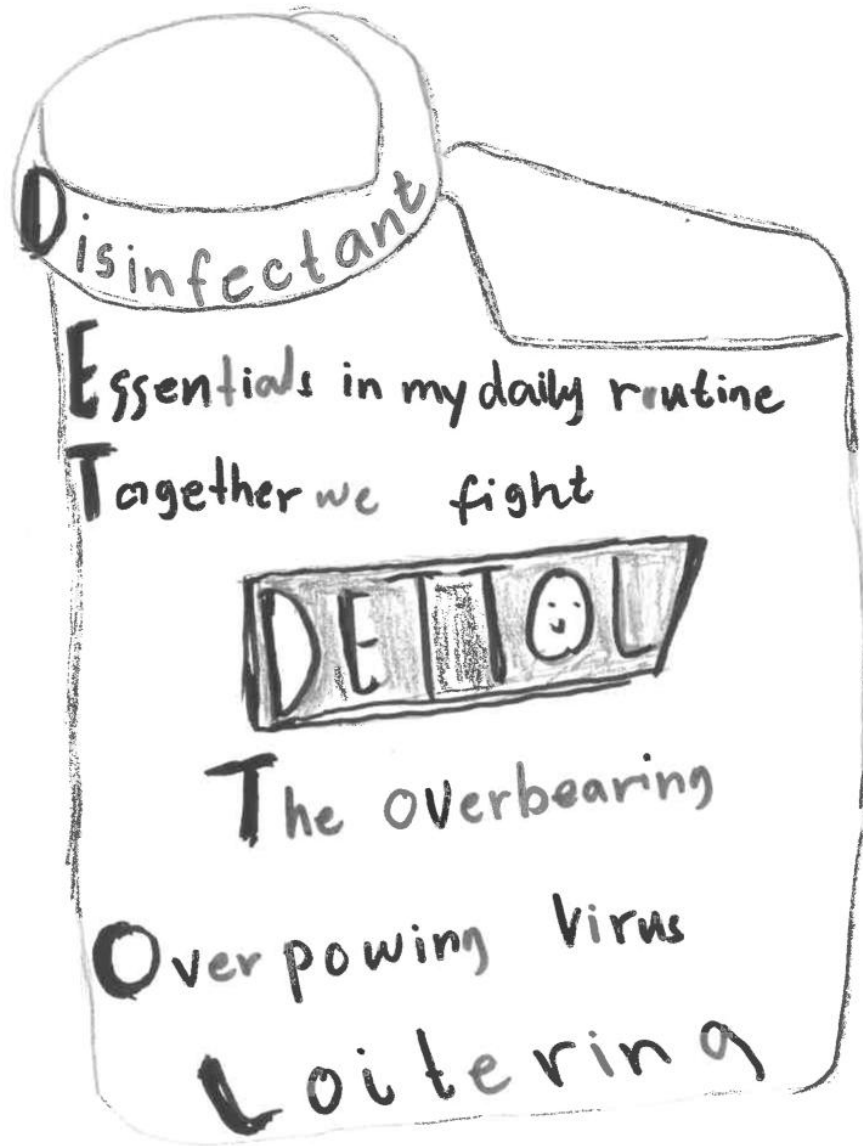 Disinfectant
Essentials in my daily routine
Together we fight
DETTOL
The overbearing
Overpowing Virus
Loitering